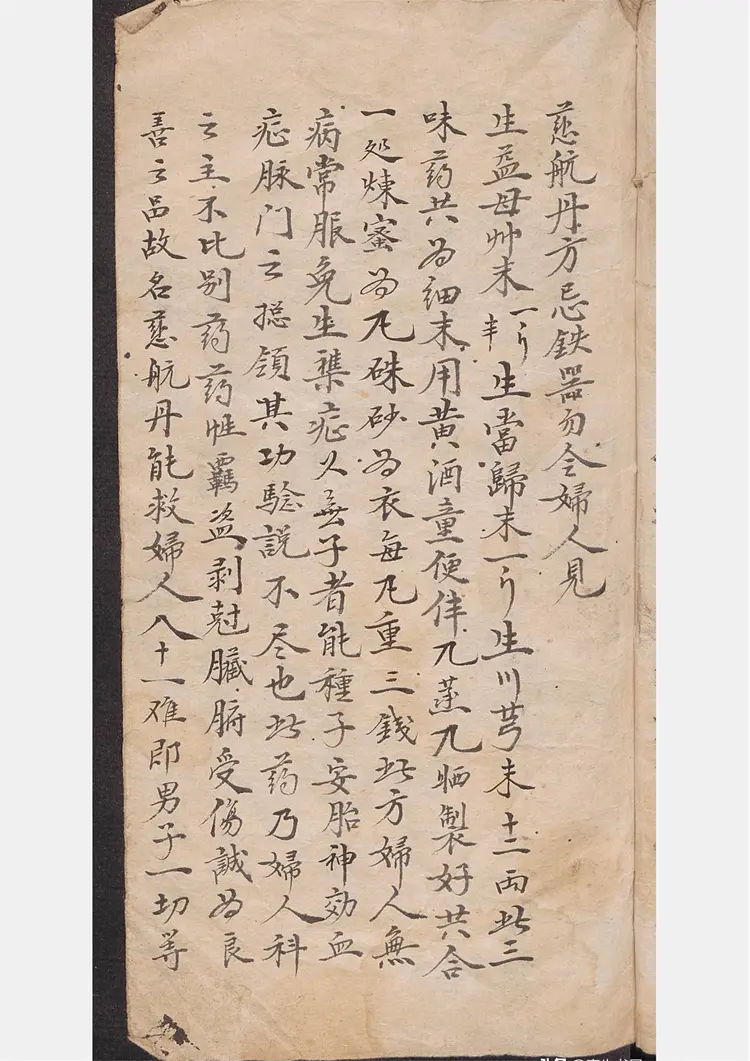 慈航丹方忌鉄器勿令婦人見
生益母艸末一斤半生當歸末一斤生川芎末十二両此三
味药共为细末用黄酒童便伴九蒸九晒製好共合
一处煉蜜为丸硃砂为衣每丸重三錢此方婦人無
病常服免生襍症久無子者能種子安胎神効血
症脉门之総領其功騐説不尽也此药乃婦人科
之主不比别药药性霸盗剥尅臟腑受傷誠为良
善之品故名慈航丹能救婦人八十一难即男子一切等